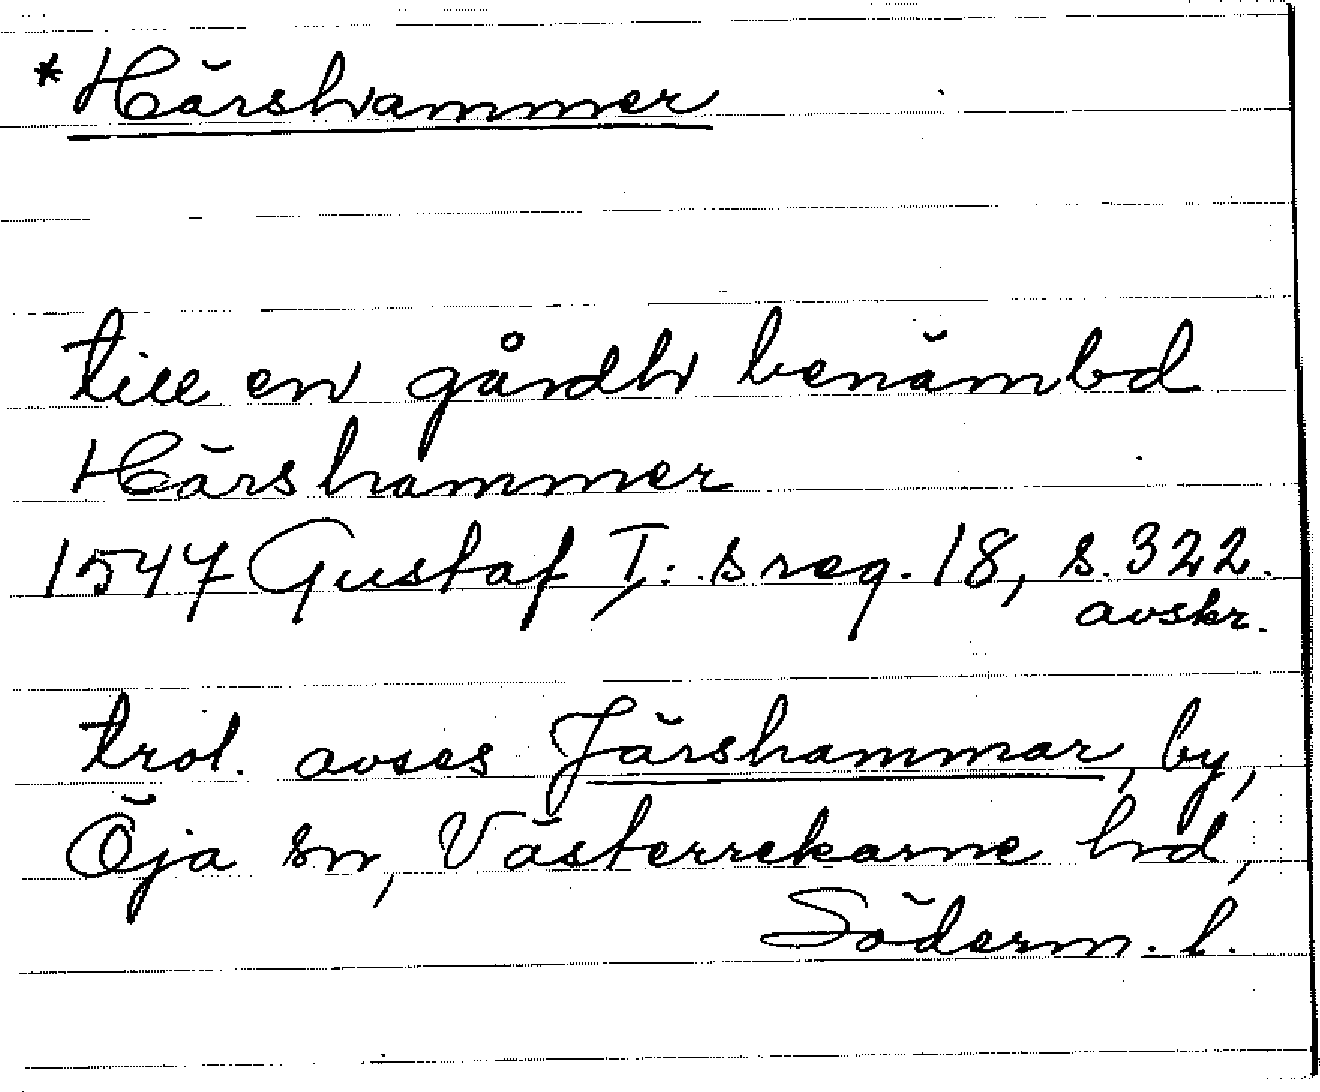 *Härshammer
till en gårdh benämbd
Härshammer
1547 Gustaf I:s reg. 18, s. 322.
avskr.
trol. avses Järshammar, by,
Öja sn, Västerrekarne hd,
Söderm. l.